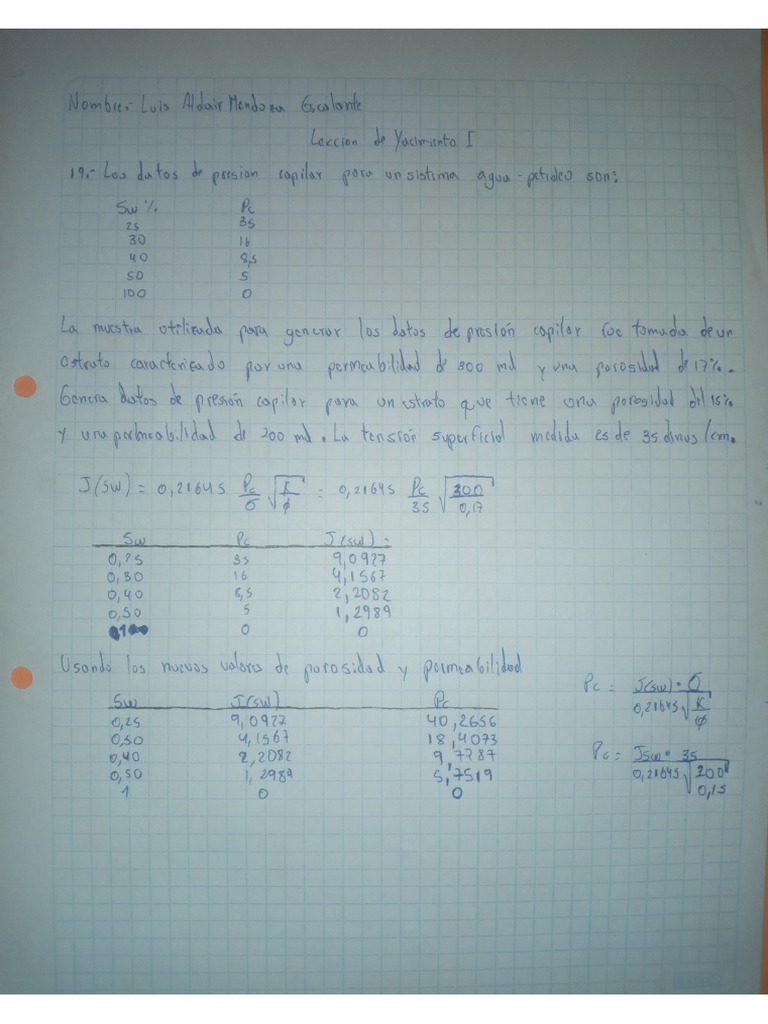 Nombre:- Luis Aldair Mendoza Escalante
Leccion de Yacimiento I
19.- Los datos de presion capilar para un sistema agua-petroleo son:
Sw % Pc
25 35
30 16
40 8,5
50 5
100 0
La muestra utilizada para generar los datos de presión capilar fue tomada de un
estrato caracterizado por una permeabilidad de 300 md y una porosidad de 17%.
Genera datos de presión capilar para un estrato que tiene una porosidad del 15%
y una permeabilidad de 200 md. La tensión superficial medida es de 35 dinas/cm.
J(sw) = 0,21645 Pc/σ √(K/φ) = 0,21645 Pc/35 √(300/0,17)
Sw Pc J(sw) =
0,25 35 9,0927
0,30 16 4,1567
0,40 8,5 2,2082
0,50 5 1,2989
0 0
Usando los nuevos valores de porosidad y permeabilidad
Pc = J(sw) • σ / 0,21645 √(K/φ)
Sw J(sw) Pc
0,25 9,0927 40,2656
0,30 4,1567 18,4073
0,40 2,2082 9,7787
0,50 1,2989 5,7519
1 0 0
Pc = Jsw • 35 / 0,21645 √(200/0,15)